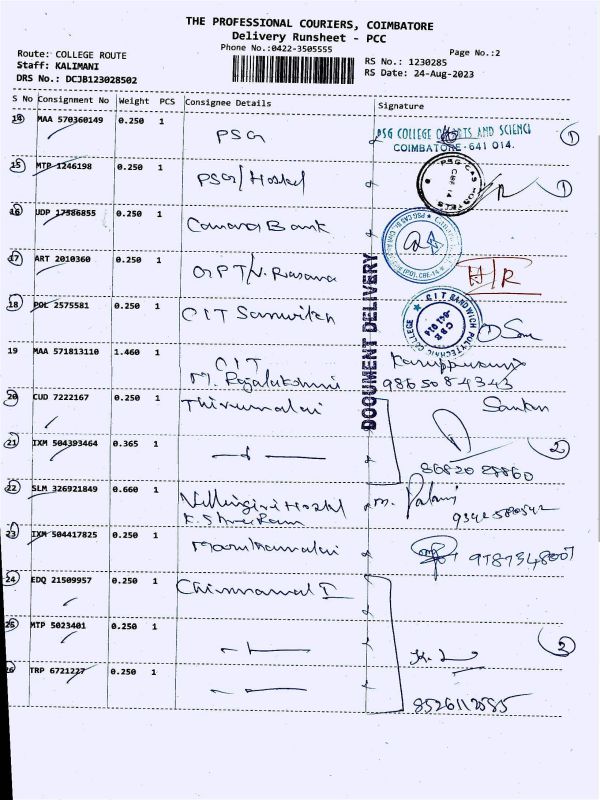 THE PROFESSIONAL COURIERS, COIMBATORE
Delivery Runsheet - PCC
Phone No.:0422-3505555
Page No.:2
Route: COLLEGE ROUTE
Staff: KALIMANI
DRS No.: DCJB123028502
RS No.: 1230285
RS Date: 24-Aug-2023
S No Consignment No Weight PCS Consignee Details Signature
14 MAA 570360149 0.250 1 PSG
PSG COLLEGE OF ARTS AND SCIENCE
COIMBATORE-641 014.
1
15 MTP 1246198 0.250 1 PSG/Hostel
1
16 UDP 17386855 0.250 1 Canara Bank
17 ART 2010360 0.250 1
H/R
18 POL 2575581 0.250 1 CIT Sanwitch
CIT SANDWICH POLYTECHNIC COLLEGE
CBE
641 014
DOCUMENT DELIVERY
19 MAA 571813110 1.460 1 CIT
M. Rajalakshmi
9865084343
20 CUD 7222167 0.250 1 Thirumalai
21 IXM 504393464 0.365 1
2
22 SLM 326921849 0.660 1 Vellingiri Hostel
K. Shreeram
23 IXM 504417825 0.250 1
24 EDQ 21509957 0.250 1
25 MTP 5023401 0.250 1
3
26 TRP 6721227 0.250 1